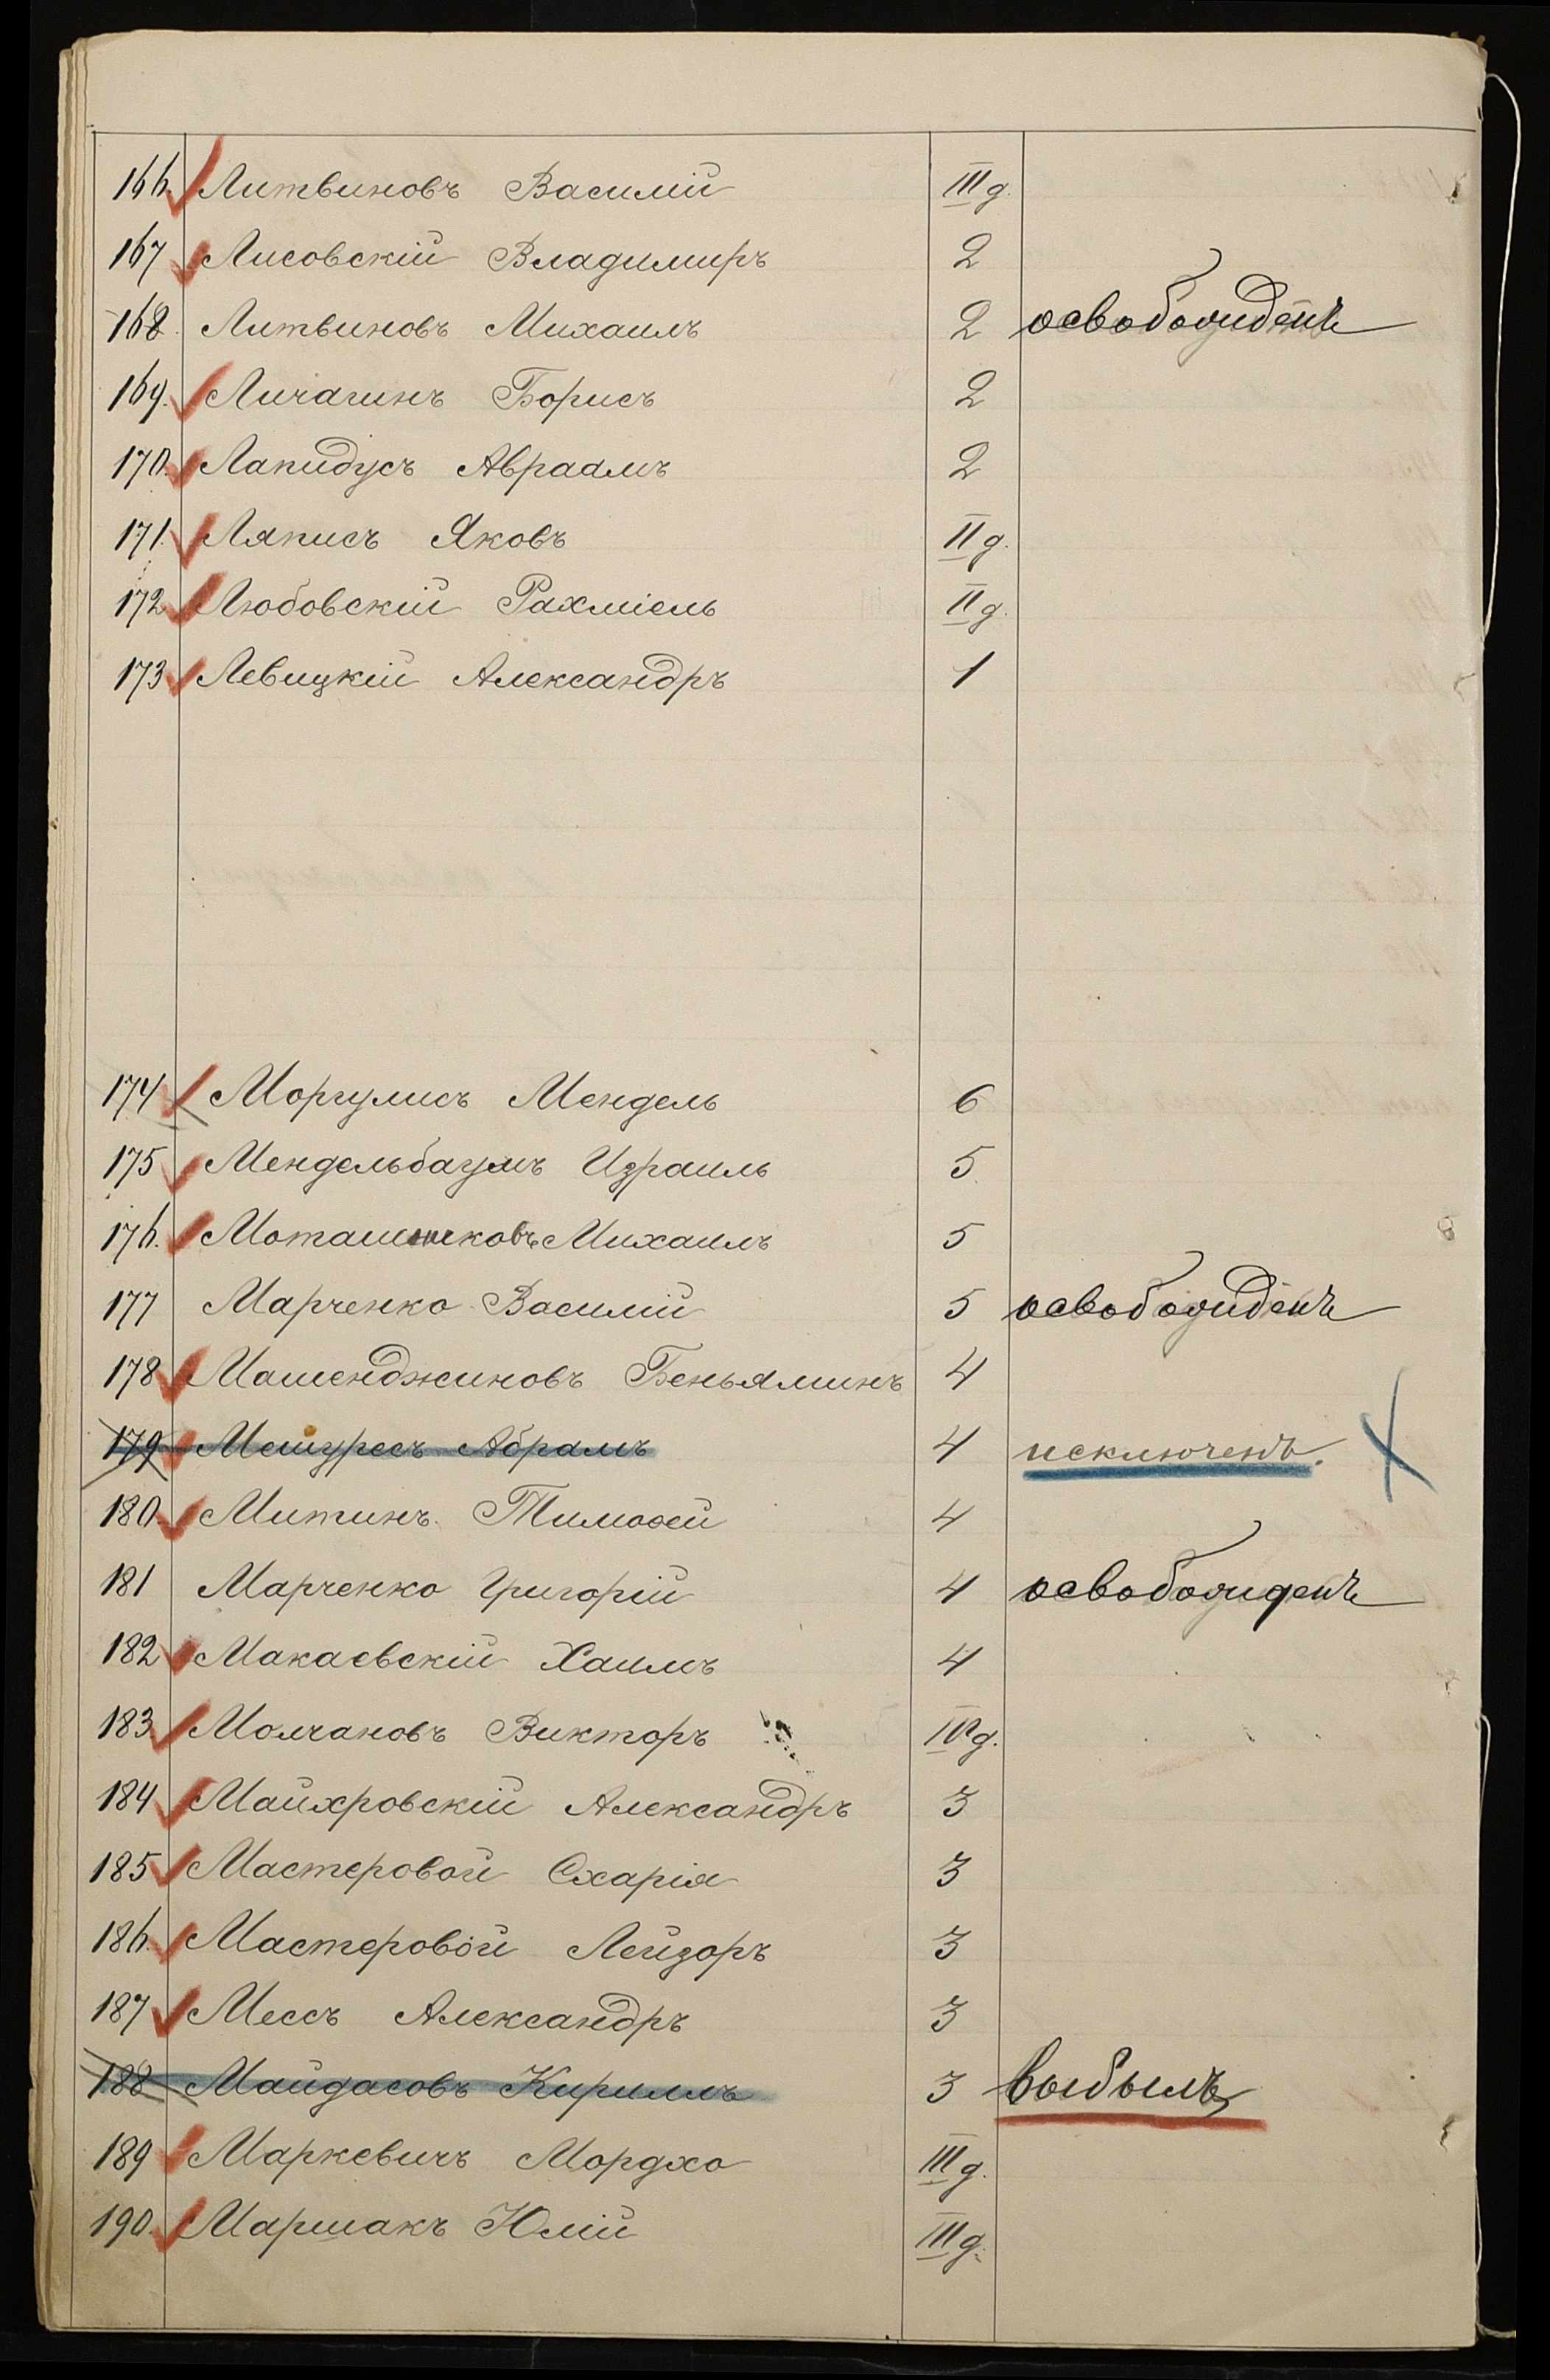 166. Литвиновъ Василій IIIд.
167 Лисовскій Владимиръ 2
168. Литвиновъ Михаилъ 2 освобожденъ
169. Личагинъ Борисъ 2
170. Лапидусъ Авраамъ 2
171. Ляписъ Яковъ IIд.
172 Любовскій Рахміель IIд.
173 Левицкій Александръ 1
174 Моргулисъ Мендель 6
175 Мендельбаумъ Израиль 5
176. Михаилъ 5
177 Марченко Василій 5 освобожденъ
178 Машенджиновъ Беньяминъ 4
179 Мешуресъ Абрамъ 4 исключенъ.
180. Митинъ Тимоѳей 4
181 Марченко Григорій 4 освобожденъ
182 Макаевскій Хаимъ 4
183 Молчановъ Викторъ IVд.
184 Майхровскій Александръ 3
185 Мастеровой Схарія 3
186. Мастеровой Лейзоръ 3
187 Мессъ Александръ 3
188 Майдасовъ Кириллъ 3 выбылъ
189 Маркевичъ Мордхо IIIд.
190. Маршакъ Юлій IIIд.